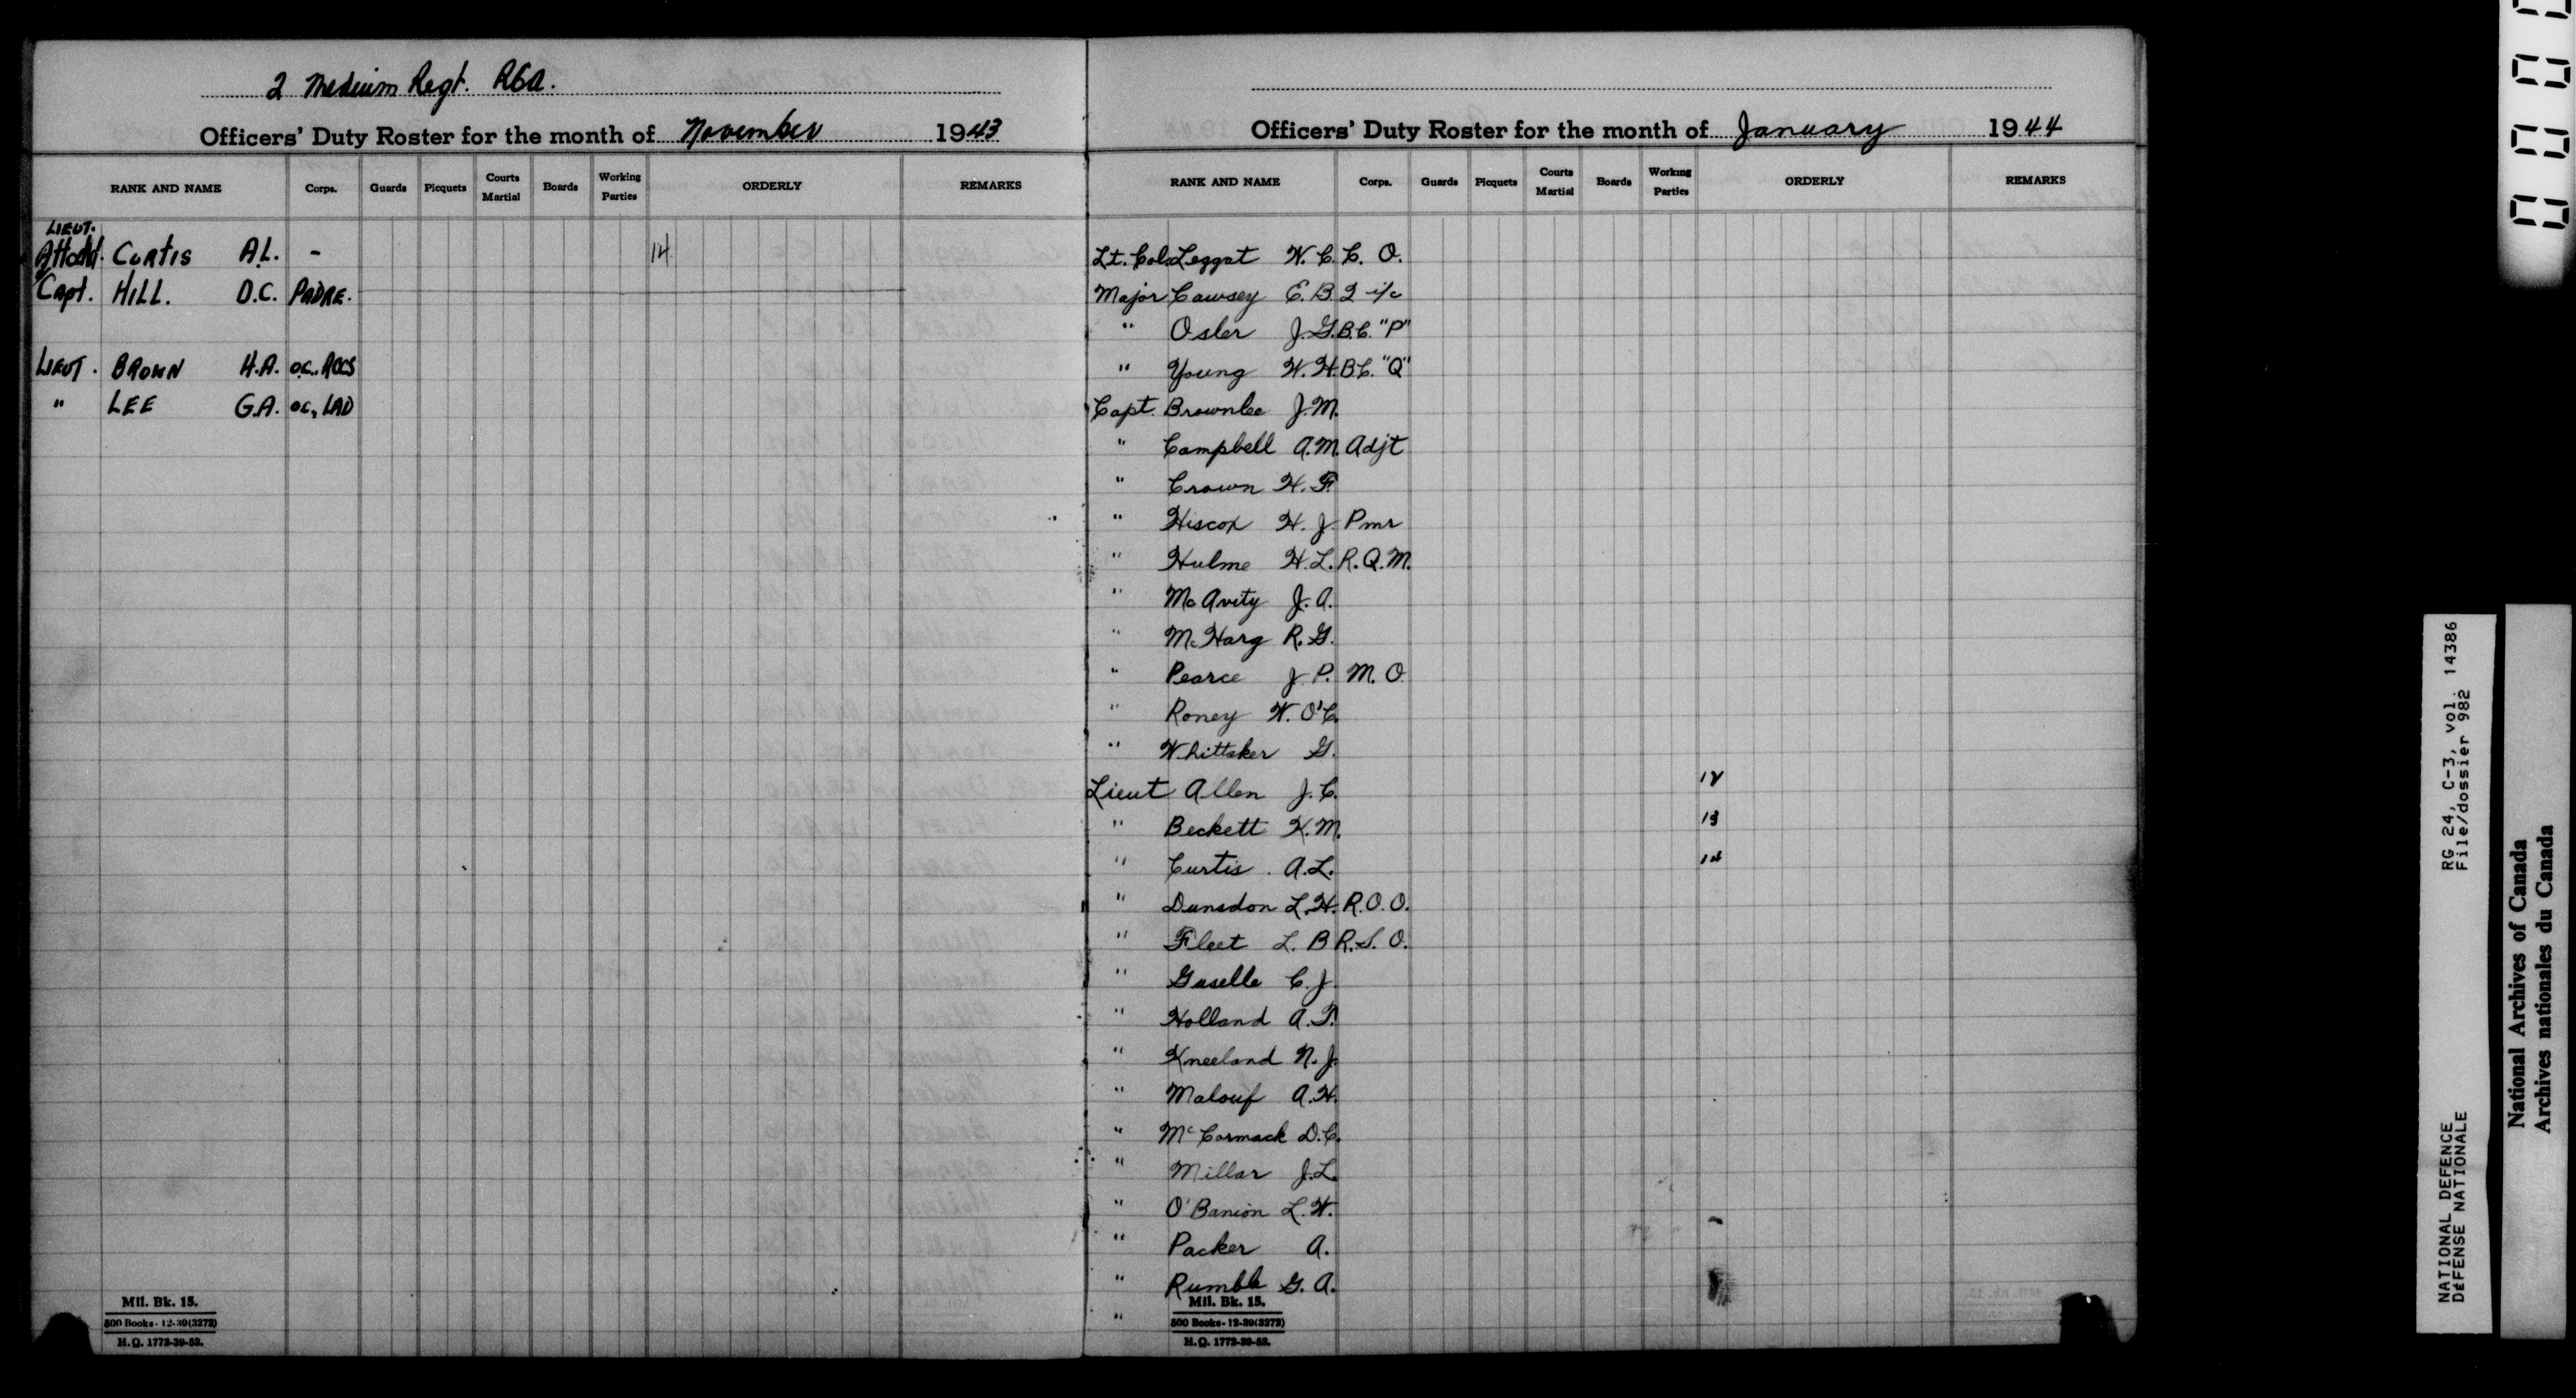 2 Medium Regt. RCA.
Officers' Duty Roster for the month of November 1943
RANK AND NAME Corps. Guards Picquets Courts Martial Boards Working Parties ORDERLY REMARKS
LIEUT.
Attchd. CURTIS A.L. - 14
Capt. HILL. D.C. PADRE.
LIEUT. BROWN H.A. OC. RCCS
" LEE G.A. OC, LAD
Mil. Bk. 15.
500 Books-12-39(3272)
H.Q. 1772-39-52.
Officers' Duty Roster for the month of January 1944
RANK AND NAME Corps. Guards Picquets Courts Martial Boards Working Parties ORDERLY REMARKS
Lt. Col. Leggat W. C. C. O.
Major Cawsey E. B. 2 i/c
" Osler J. G. B.C. "P"
" Young W. H. B.C. "Q"
Capt. Brownlee J.M.
" Campbell A.M. Adjt
" Crown H. F.
" Hiscox H. J. Pmr
" Hulme H. L. R. Q. M.
" McAvity J. A.
" McHarg R. G.
" Pearce J. P. M. O.
" Roney W. O'C.
" Whittaker G.
Lieut Allen J. C. 12
" Beckett K. M. 13
" Curtis. A. L. 14
" Dunsdon L. H. R. O. O.
" Fleet L. B R. S. O.
" Guselle C. J.
" Holland A. T.
" Kneeland N. J.
" Malouf A. H.
" McCormack D. C.
" Millar J. L.
" O'Banion L. W.
" Packer A.
" Rumble G. A.
"
Mil. Bk. 15.
500 Books-12-39(3272)
H.Q. 1772-39-52.
RG 24, C-3, vol. 14386
File/dossier 982
NATIONAL DEFENCE
DÉFENSE NATIONALE
National Archives of Canada
Archives nationales du Canada